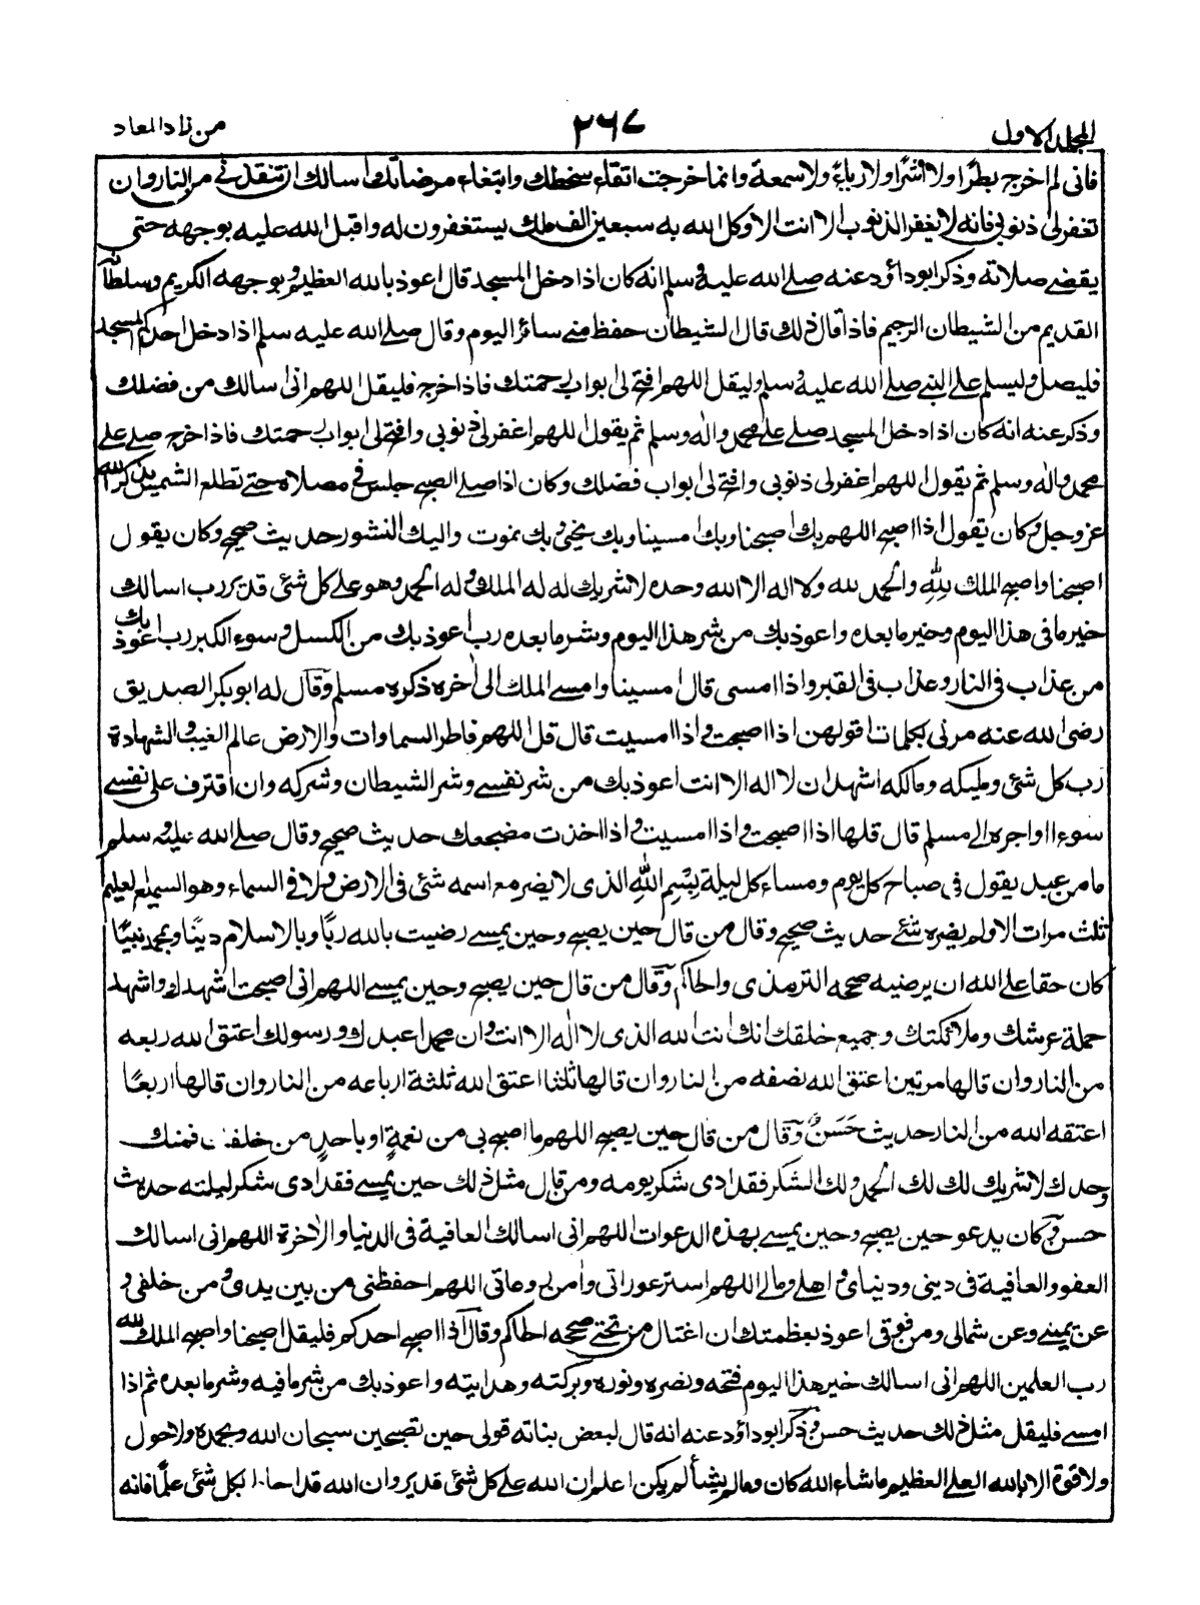 المجلد الاول ٢٦٧ من زاد المعاد
فانى لم اخرج بطرًا ولا اشرًا ولا رياءً ولا سمعة وانما خرجت اتقاء سخطك وابتغاء مرضاتك اسالك ان تنقذنى من النار وان
تغفر لى ذنوبى فانه لا يغفر الذنوب الا انت الا وكل الله به سبعين الف ملك يستغفرون له واقبل الله عليه بوجهه حتى
يقضى صلاته وذكر ابوداؤد عنه صلى الله عليه وسلم انه كان اذا دخل المسجد قال اعوذ بالله العظيم وبوجهه الكريم وسلطانه
القديم من الشيطان الرجيم فاذا قال ذلك قال الشيطان حفظ منى سائر اليوم وقال صلى الله عليه سلم اذا دخل احدكم المسجد
فليصل وليسلم على النبى صلى الله عليه وسلم وليقل اللهم افتح لى ابواب رحمتك فاذا خرج فليقل اللهم انى اسالك من فضلك
وذكر عنه انه كان اذا دخل المسجد صلى على محمد واله وسلم ثم يقول اللهم اغفر لى ذنوبى وافتح لى ابواب رحمتك فاذا خرج صلى على
محمد واله وسلم ثم يقول اللهم اغفر لى ذنوبى وافتح لى ابواب فضلك وكان اذا صلى الصبح جلس فى مصلاه حتى تطلع الشمس يذكر الله
عز وجل وكان يقول اذا اصبح اللهم بك اصبحنا وبك امسينا وبك نحيى وبك نموت واليك النشور حديث صحيح وكان يقول
اصبحنا واصبح الملك لِلّٰهِ والحمد لله ولا اله الا الله وحده لا شريك له له الملك وله الحمد وهو على كل شئ قدير رب اسالك
خير ما فى هذا اليوم وخير ما بعده واعوذ بك من شر هذا اليوم وشر ما بعده رب اعوذ بك من الكسل وسوء الكبر رب اعوذ بك
من عذاب فى النار وعذاب فى القبر واذا امسى قال امسينا وامسى الملك الى اخره ذكره مسلم وقال له ابوبكر الصديق
رضى الله عنه مرنى بكلمات اقولهن اذا اصبحت واذا امسيت قال قل اللهم فاطر السماوات والارض عالم الغيب والشهادة
رب كل شئ ومليكه ومالكه اشهد ان لا اله الا انت اعوذ بك من شر نفسى وشر الشيطان وشركه وان اقترف على نفسى
سوءا او اجره الى مسلم قال قلها اذا اصبحت واذا امسيت واذا اخذت مضجعك حديث صحيح وقال صلى الله عليه سلم
ما من عبد يقول فى صباح كل يوم ومساء كل ليلة بِسْمِ اللهِ الذى لا يضر مع اسمه شئ فى الارض ولا فى السماء وهو السميع العليم
ثلث مرات الا ولم يضره شئ حديث صحيح وقال من قال حين يصبح وحين يمسى رضيت بالله ربًا وبالاسلام دينًا وبمحمد نبيًا
كان حقا على الله ان يرضيه صححه الترمذى والحاكم وقال من قال حين يصبح وحين يمسى اللهم انى اصبحت اشهدك واشهد
حملة عرشك وملائكتك وجميع خلقك انك انت الله الذى لا اله الا انت وان محمدا عبدك ورسولك اعتق الله ربعه
من النار وان قالها مرتين اعتق الله نصفه من النار وان قالها ثلثا اعتق الله ثلثة ارباعه من النار وان قالها اربعًا
اعتقه الله من النار حديث حَسَنٌ وقال من قال حين يصبح اللهم ما اصبح بى من نعمةٍ او باحدٍ من خلقك فمنك
وحدك لا شريك لك لك الحمد ولك الشكر فقد ادى شكر يومه ومن قال مثل ذلك حين يمسى فقد ادى شكر ليلته حديث
حسن وكان يدعو حين يصبح وحين يمسى بهذه الدعوات اللهم انى اسالك العافية فى الدنيا والاخرة اللهم انى اسالك
العفو والعافية فى دينى ودنياى واهلى ومالى اللهم استر عوراتى وامن روعاتى اللهم احفظنى من بين يدى ومن خلفى و
عن يمينى وعن شمالى ومن فوقى اعوذ بعظمتك ان اغتال من تحتى صححه الحاكم وقال اذا اصبح احدكم فليقل اصبحنا واصبح الملك لله
رب العلمين اللهم انى اسالك خير هذا اليوم فتحه ونصره ونوره وبركته وهدايته واعوذ بك من شر ما فيه وشر ما بعده ثم اذا
امسى فليقل مثل ذلك حديث حسن وذكر ابوداؤد عنه انه قال لبعض بناته قولى حين تصبحين سبحان الله وبحمده ولا حول
ولا قوة الا بالله العلى العظيم ما شاء الله كان وما لم يشأ لم يكن اعلم ان الله على كل شئ قدير وان الله قد احاط بكل شئ علمًا فانه